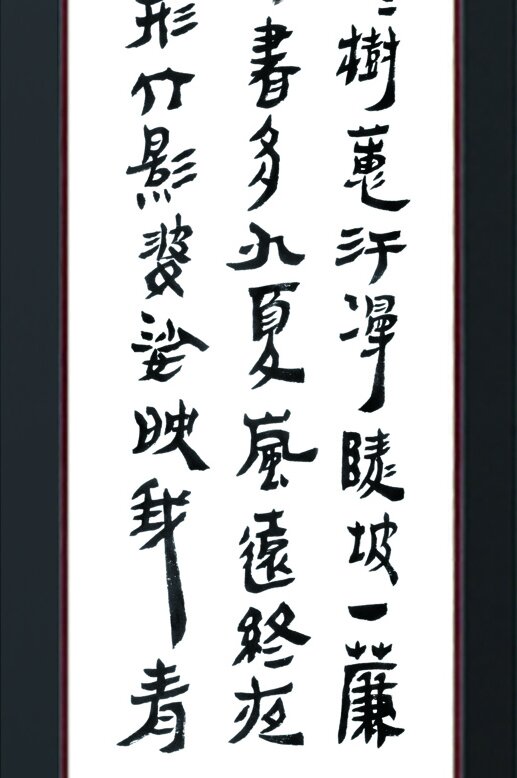 樹蕙汗陵坡一薕
書多九夏嵐遠終夜
形竹影婆娑映我青